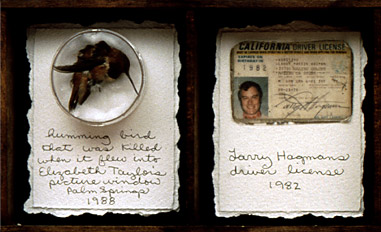 humming bird
that was killed
when it flew into
Elizabeth Taylor's
picture window
Palm Springs
1988
CALIFORNIA DRIVER LICENSE
1982
Larry Hagmans
driver license
1982